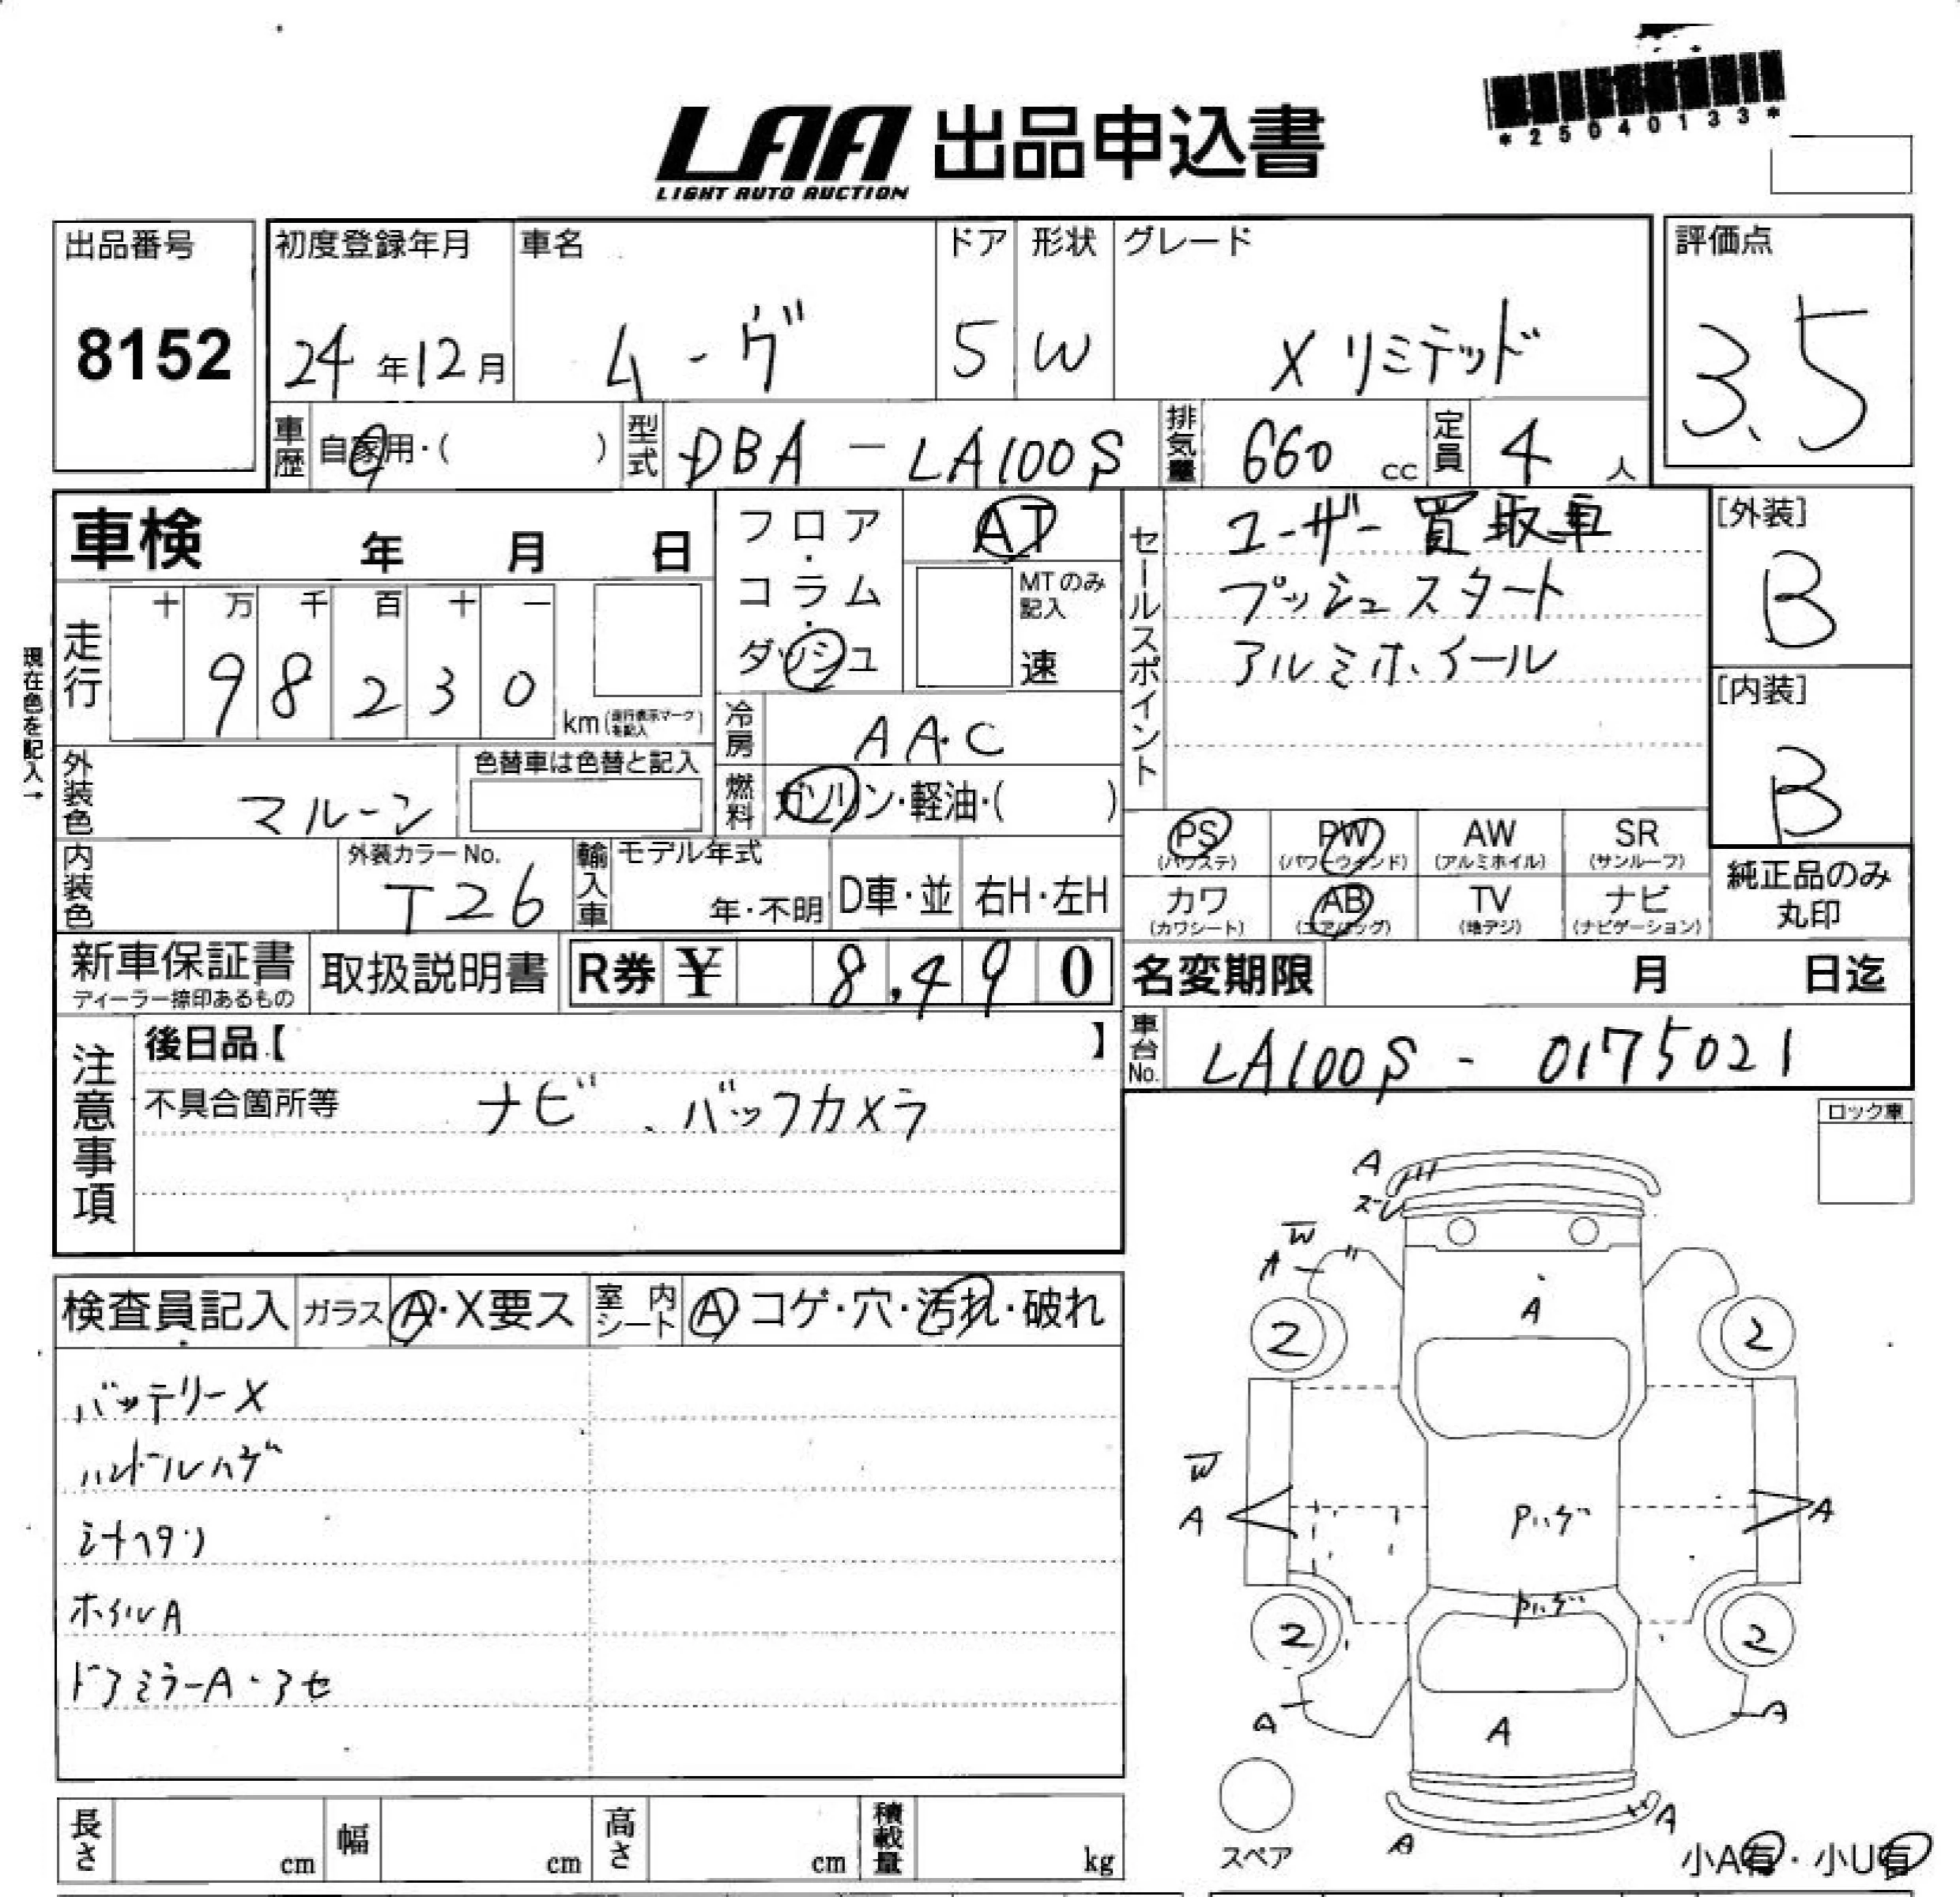 *25040133*
LAA 出品申込書
LIGHT AUTO AUCTION
出品番号 8152
初度登録年月 24年12月
車名 ムーヴ
ドア 5
形状 W
グレード Xリミテッド
評価点 3.5
車歴 自家用・( )
型式 DBA-LA100S
排気量 660 cc
定員 4 人
車検 年 月 日
フロア・コラム・ダッシュ
AT
MTのみ記入
速
セールスポイント
ユーザー買取車
プッシュスタート
アルミホイール
[外装] B
[内装] B
現在色を記入→
走行 十 万 千 百 十 一
9 8 2 3 0 km (走行表示マークを記入)
冷房 AAC
外装色 マルーン
色替車は色替と記入
燃料 ガソリン・軽油・( )
PS (パワステ) PW (パワーウィンド) AW (アルミホイル) SR (サンルーフ)
カワ (カワシート) AB (エアバッグ) TV (地デジ) ナビ (ナビゲーション)
純正品のみ丸印
内装色
外装カラーNo. T26
輸入車 モデル年式 年・不明 D車・並 右H・左H
新車保証書
ディーラー捺印あるもの
取扱説明書
R券 ¥ 8,490
名変期限 月 日迄
車台No. LA100S-0175021
注意事項
後日品【 】
不具合箇所等 ナビ、バックカメラ
ロック車
検査員記入 ガラス A・X要ス 室内シート A コゲ・穴・汚れ・破れ
バッテリーX
ハンドルハゲ
シートヘタリ
ホイルA
ドアミラーA・アセ
A
ズレ
W
A
A
2 2
W
A
Pハゲ
A
Pハゲ
2 2
A
A
A
スペア
A
A
小A有・小U有
長さ cm 幅 cm 高さ cm 積載量 kg